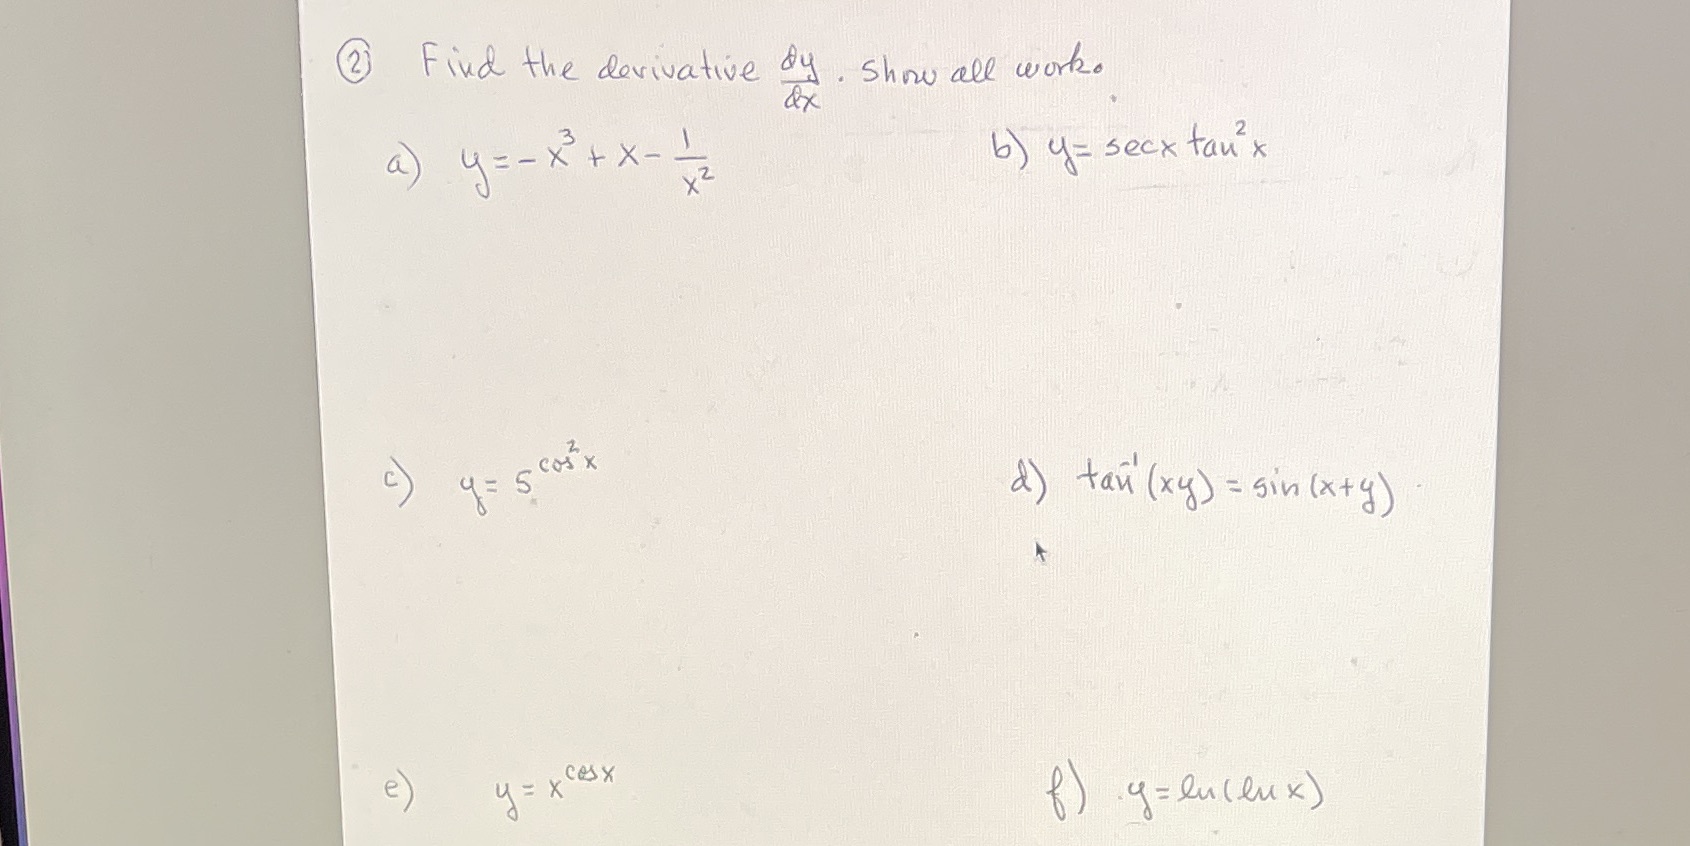 ② Find the derivative dy/dx. Show all work.
a) y = -x³ + x - 1/x²
b) y = secx tan²x
c) y = 5^cos²x
d) tan⁻¹(xy) = sin(x+y)
e) y = x^cosx
f) y = ln(lnx)